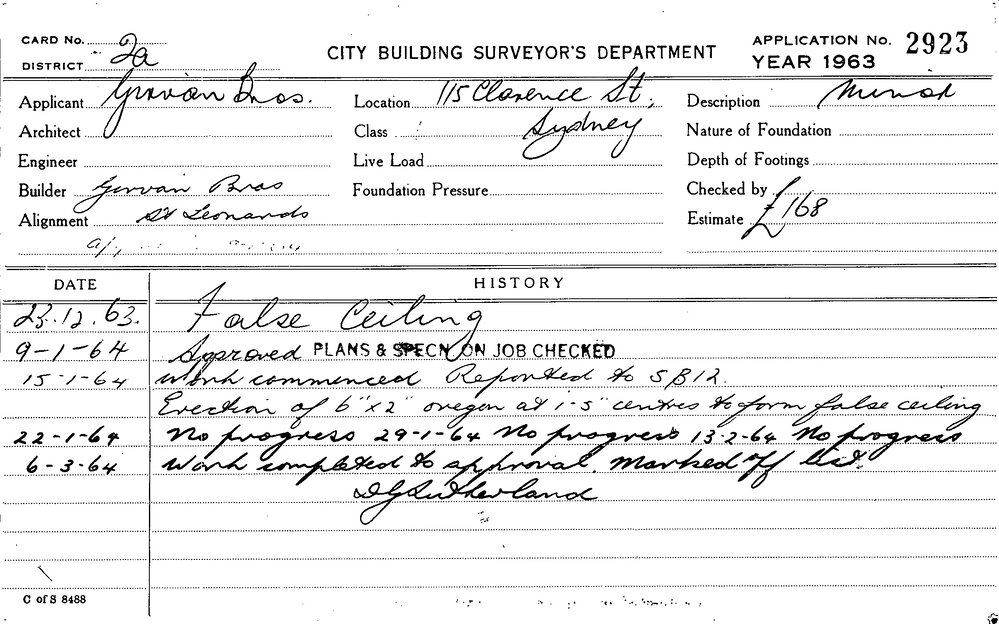 CARD No.
CITY BUILDING SURVEYOR'S DEPARTMENT
APPLICATION No. 2923
DISTRICT 2a
YEAR 1963
Applicant Girvan Bros.
Location 115 Clarence St,
Description Minor
Architect
Class Sydney
Nature of Foundation
Engineer
Live Load
Depth of Footings
Builder Girvan Bros
Foundation Pressure
Checked by
Alignment St Leonards
Estimate £168
DATE HISTORY
23.12.63. False Ceiling
9-1-64 Approved PLANS & SPECN ON JOB CHECKED
15-1-64 Work commenced Reported to SB12.
Erection of 6"x2" oregon at 1-5" centres to form false ceiling
22-1-64 No progress 29-1-64 No progress 13-2-64 No progress
6-3-64 Work completed to approval. Marked off list.
Sutherland
C of S 8488